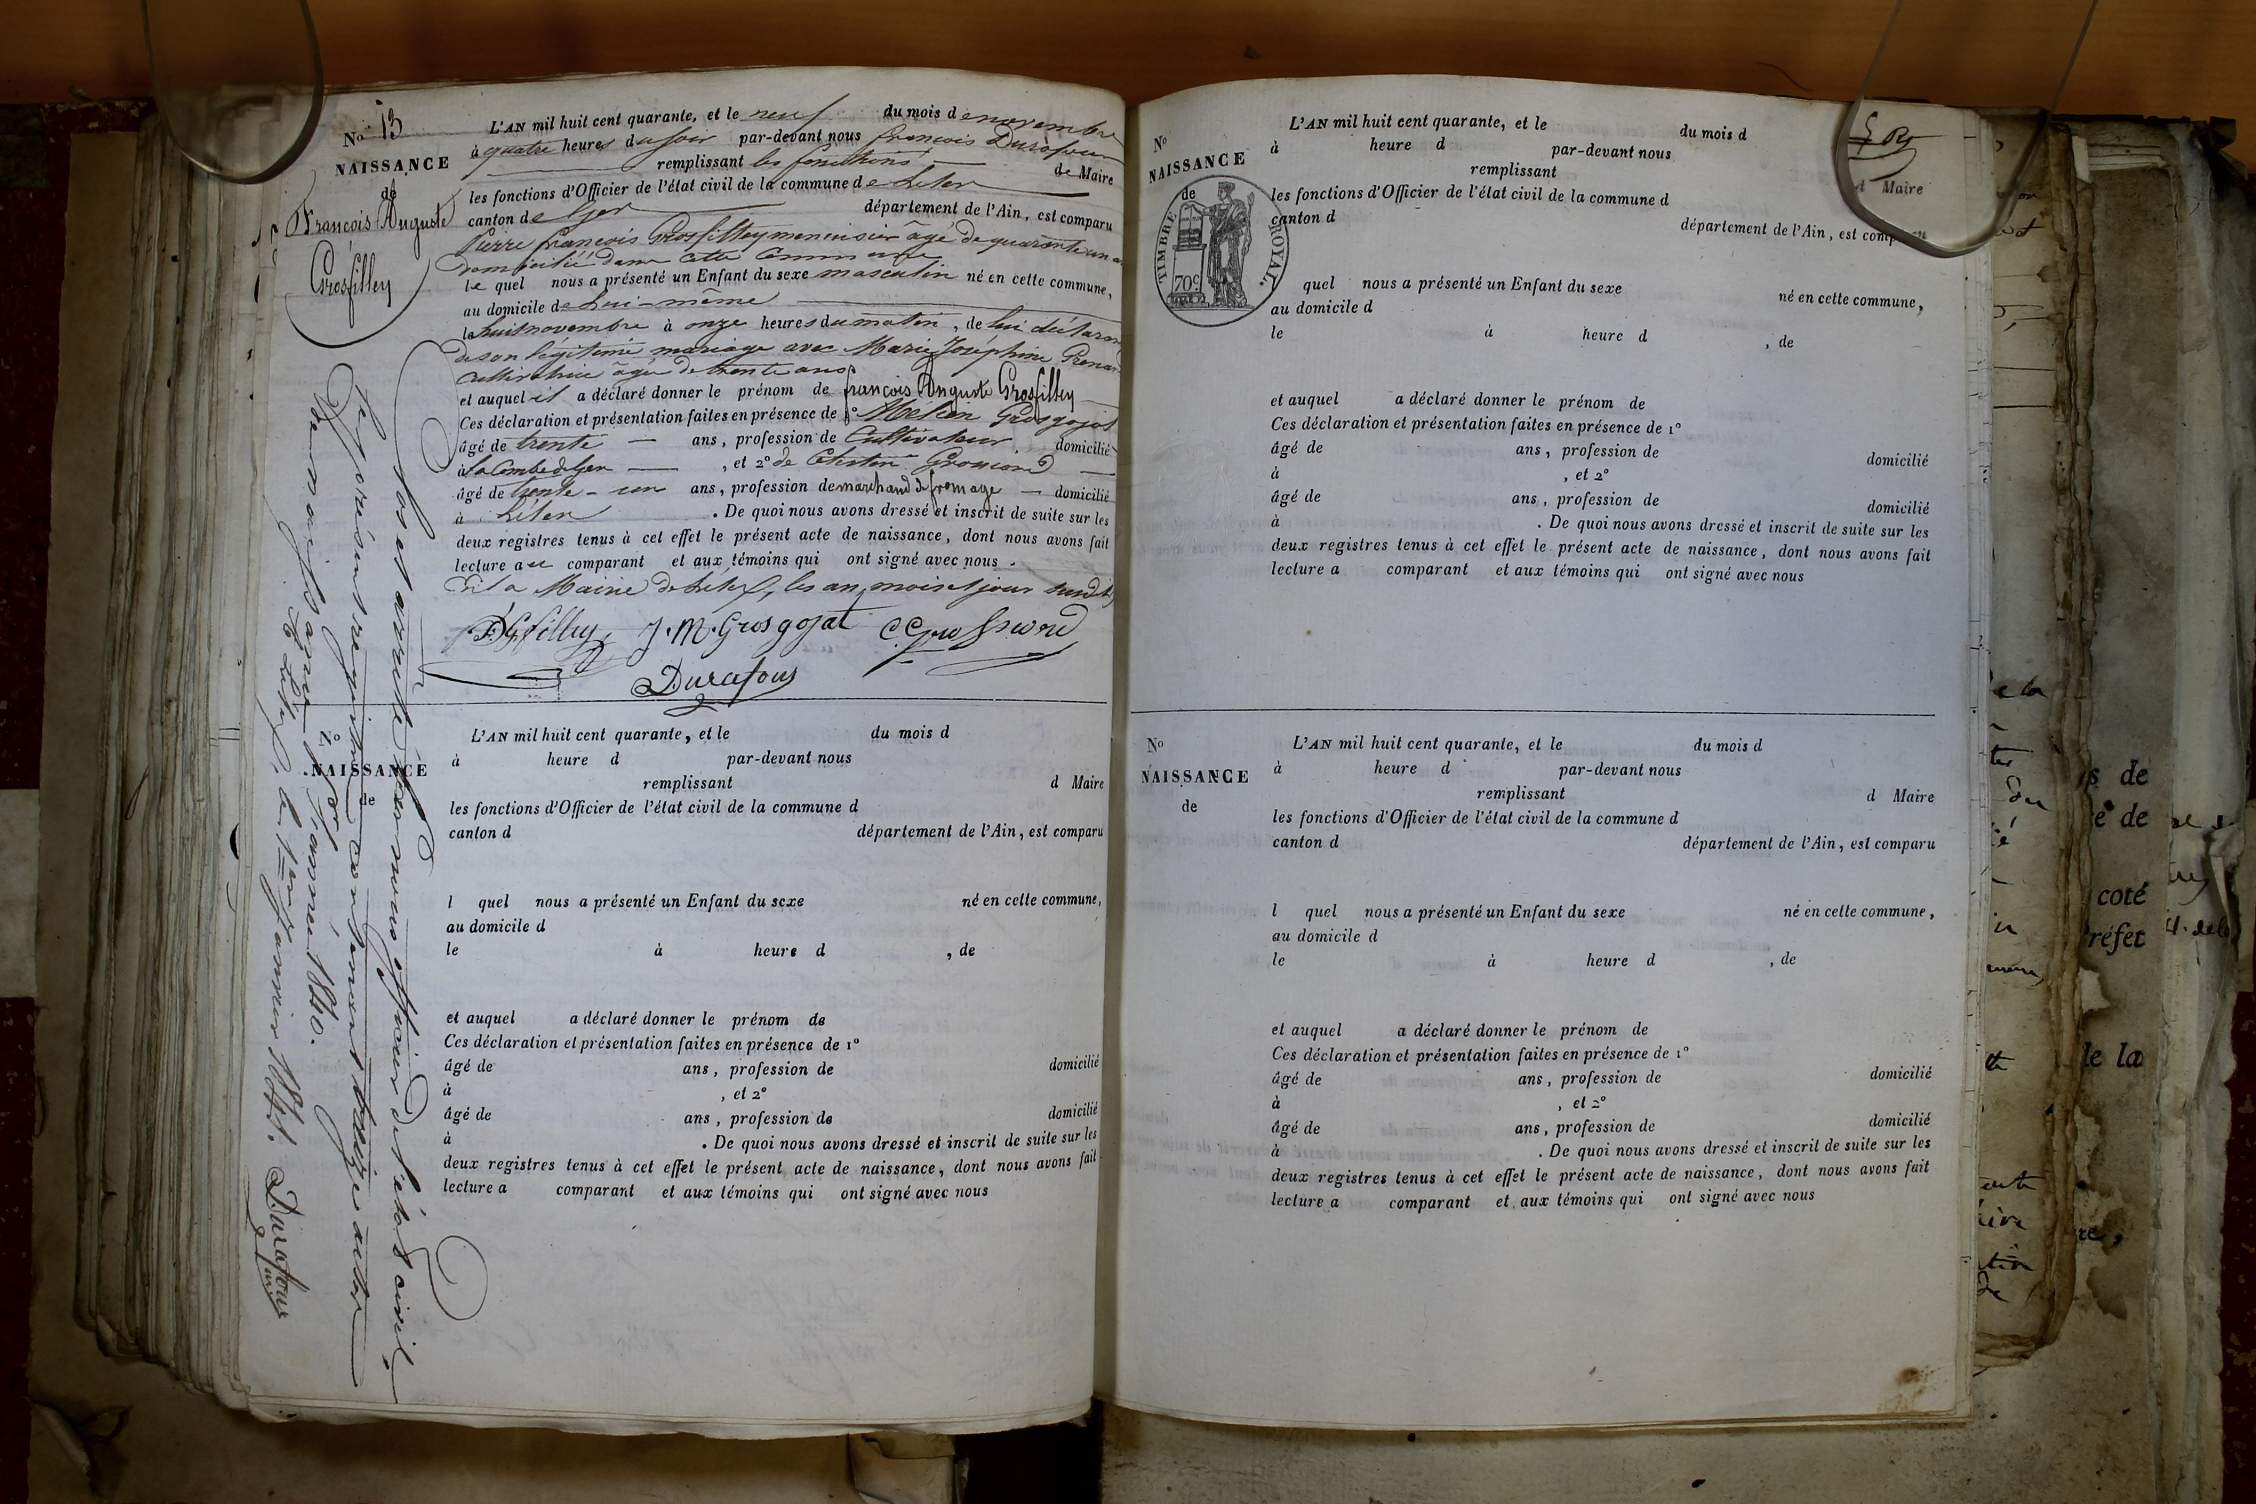 No 13
NAISSANCE
de
François Auguste
Grosfilley
L'AN mil huit cent quarante, et le neuf du mois de novembre
à quatre heures du soir par-devant nous françois Durafour
remplissant les fonctions de Maire
les fonctions d'Officier de l'état civil de la commune de Lélex
canton de Gex département de l'Ain, est comparu
Pierre françois Grosfilley menuisier âgé de quarante un ans
domicilié dans cette Commune
le quel nous a présenté un Enfant du sexe masculin né en cette commune,
au domicile de Lui-même
le huit novembre à onze heures du matin, de lui déclarant
de son légitime mariage avec Marie Joséphine
Cultivatrice âgée de trente ans
et auquel il a déclaré donner le prénom de françois Auguste Grosfilley
Ces déclaration et présentation faites en présence de 1º Grosgojat
âgé de trente ans, profession de Cultivateur domicilié
à , et 2º de
âgé de trente-un ans, profession de marchand de fromage domicilié
à Lélex . De quoi nous avons dressé et inscrit de suite sur les
deux registres tenus à cet effet le présent acte de naissance, dont nous avons fait
lecture au comparant et aux témoins qui ont signé avec nous.
à la Mairie de Lélex, les an, mois et jour susdits
J. M. Grosgojat
Durafour
Clos et arrêté par nous officier de l'état civil,
le présent registre contenant treize actes
de naissance pour l'année 1840.
à Lélex, le 1er janvier 1841. Durafour
maire
Nº
NAISSANCE
de
L'AN mil huit cent quarante, et le du mois d
à heure d par-devant nous
remplissant d Maire
les fonctions d'Officier de l'état civil de la commune d
canton d département de l'Ain, est comparu
l quel nous a présenté un Enfant du sexe né en cette commune,
au domicile d
le à heure d , de
et auquel a déclaré donner le prénom de
Ces déclaration et présentation faites en présence de 1º
âgé de ans, profession de domicilié
à , et 2º
âgé de ans, profession de domicilié
à . De quoi nous avons dressé et inscrit de suite sur les
deux registres tenus à cet effet le présent acte de naissance, dont nous avons fait
lecture a comparant et aux témoins qui ont signé avec nous
Nº
NAISSANCE
de
TIMBRE ROYAL.
70c
L'AN mil huit cent quarante, et le du mois d
à heure d par-devant nous
remplissant d Maire
les fonctions d'Officier de l'état civil de la commune d
canton d département de l'Ain, est comparu
quel nous a présenté un Enfant du sexe né en cette commune,
au domicile d
le à heure d , de
et auquel a déclaré donner le prénom de
Ces déclaration et présentation faites en présence de 1º
âgé de ans, profession de domicilié
à , et 2º
âgé de ans, profession de domicilié
à . De quoi nous avons dressé et inscrit de suite sur les
deux registres tenus à cet effet le présent acte de naissance, dont nous avons fait
lecture a comparant et aux témoins qui ont signé avec nous
Nº
NAISSANCE
de
L'AN mil huit cent quarante, et le du mois d
à heure d par-devant nous
remplissant d Maire
les fonctions d'Officier de l'état civil de la commune d
canton d département de l'Ain, est comparu
l quel nous a présenté un Enfant du sexe né en cette commune,
au domicile d
le à heure d , de
et auquel a déclaré donner le prénom de
Ces déclaration et présentation faites en présence de 1º
âgé de ans, profession de domicilié
à , et 2º
âgé de ans, profession de domicilié
à . De quoi nous avons dressé et inscrit de suite sur les
deux registres tenus à cet effet le présent acte de naissance, dont nous avons fait
lecture a comparant et aux témoins qui ont signé avec nous
de
de
coté
réfet
de la